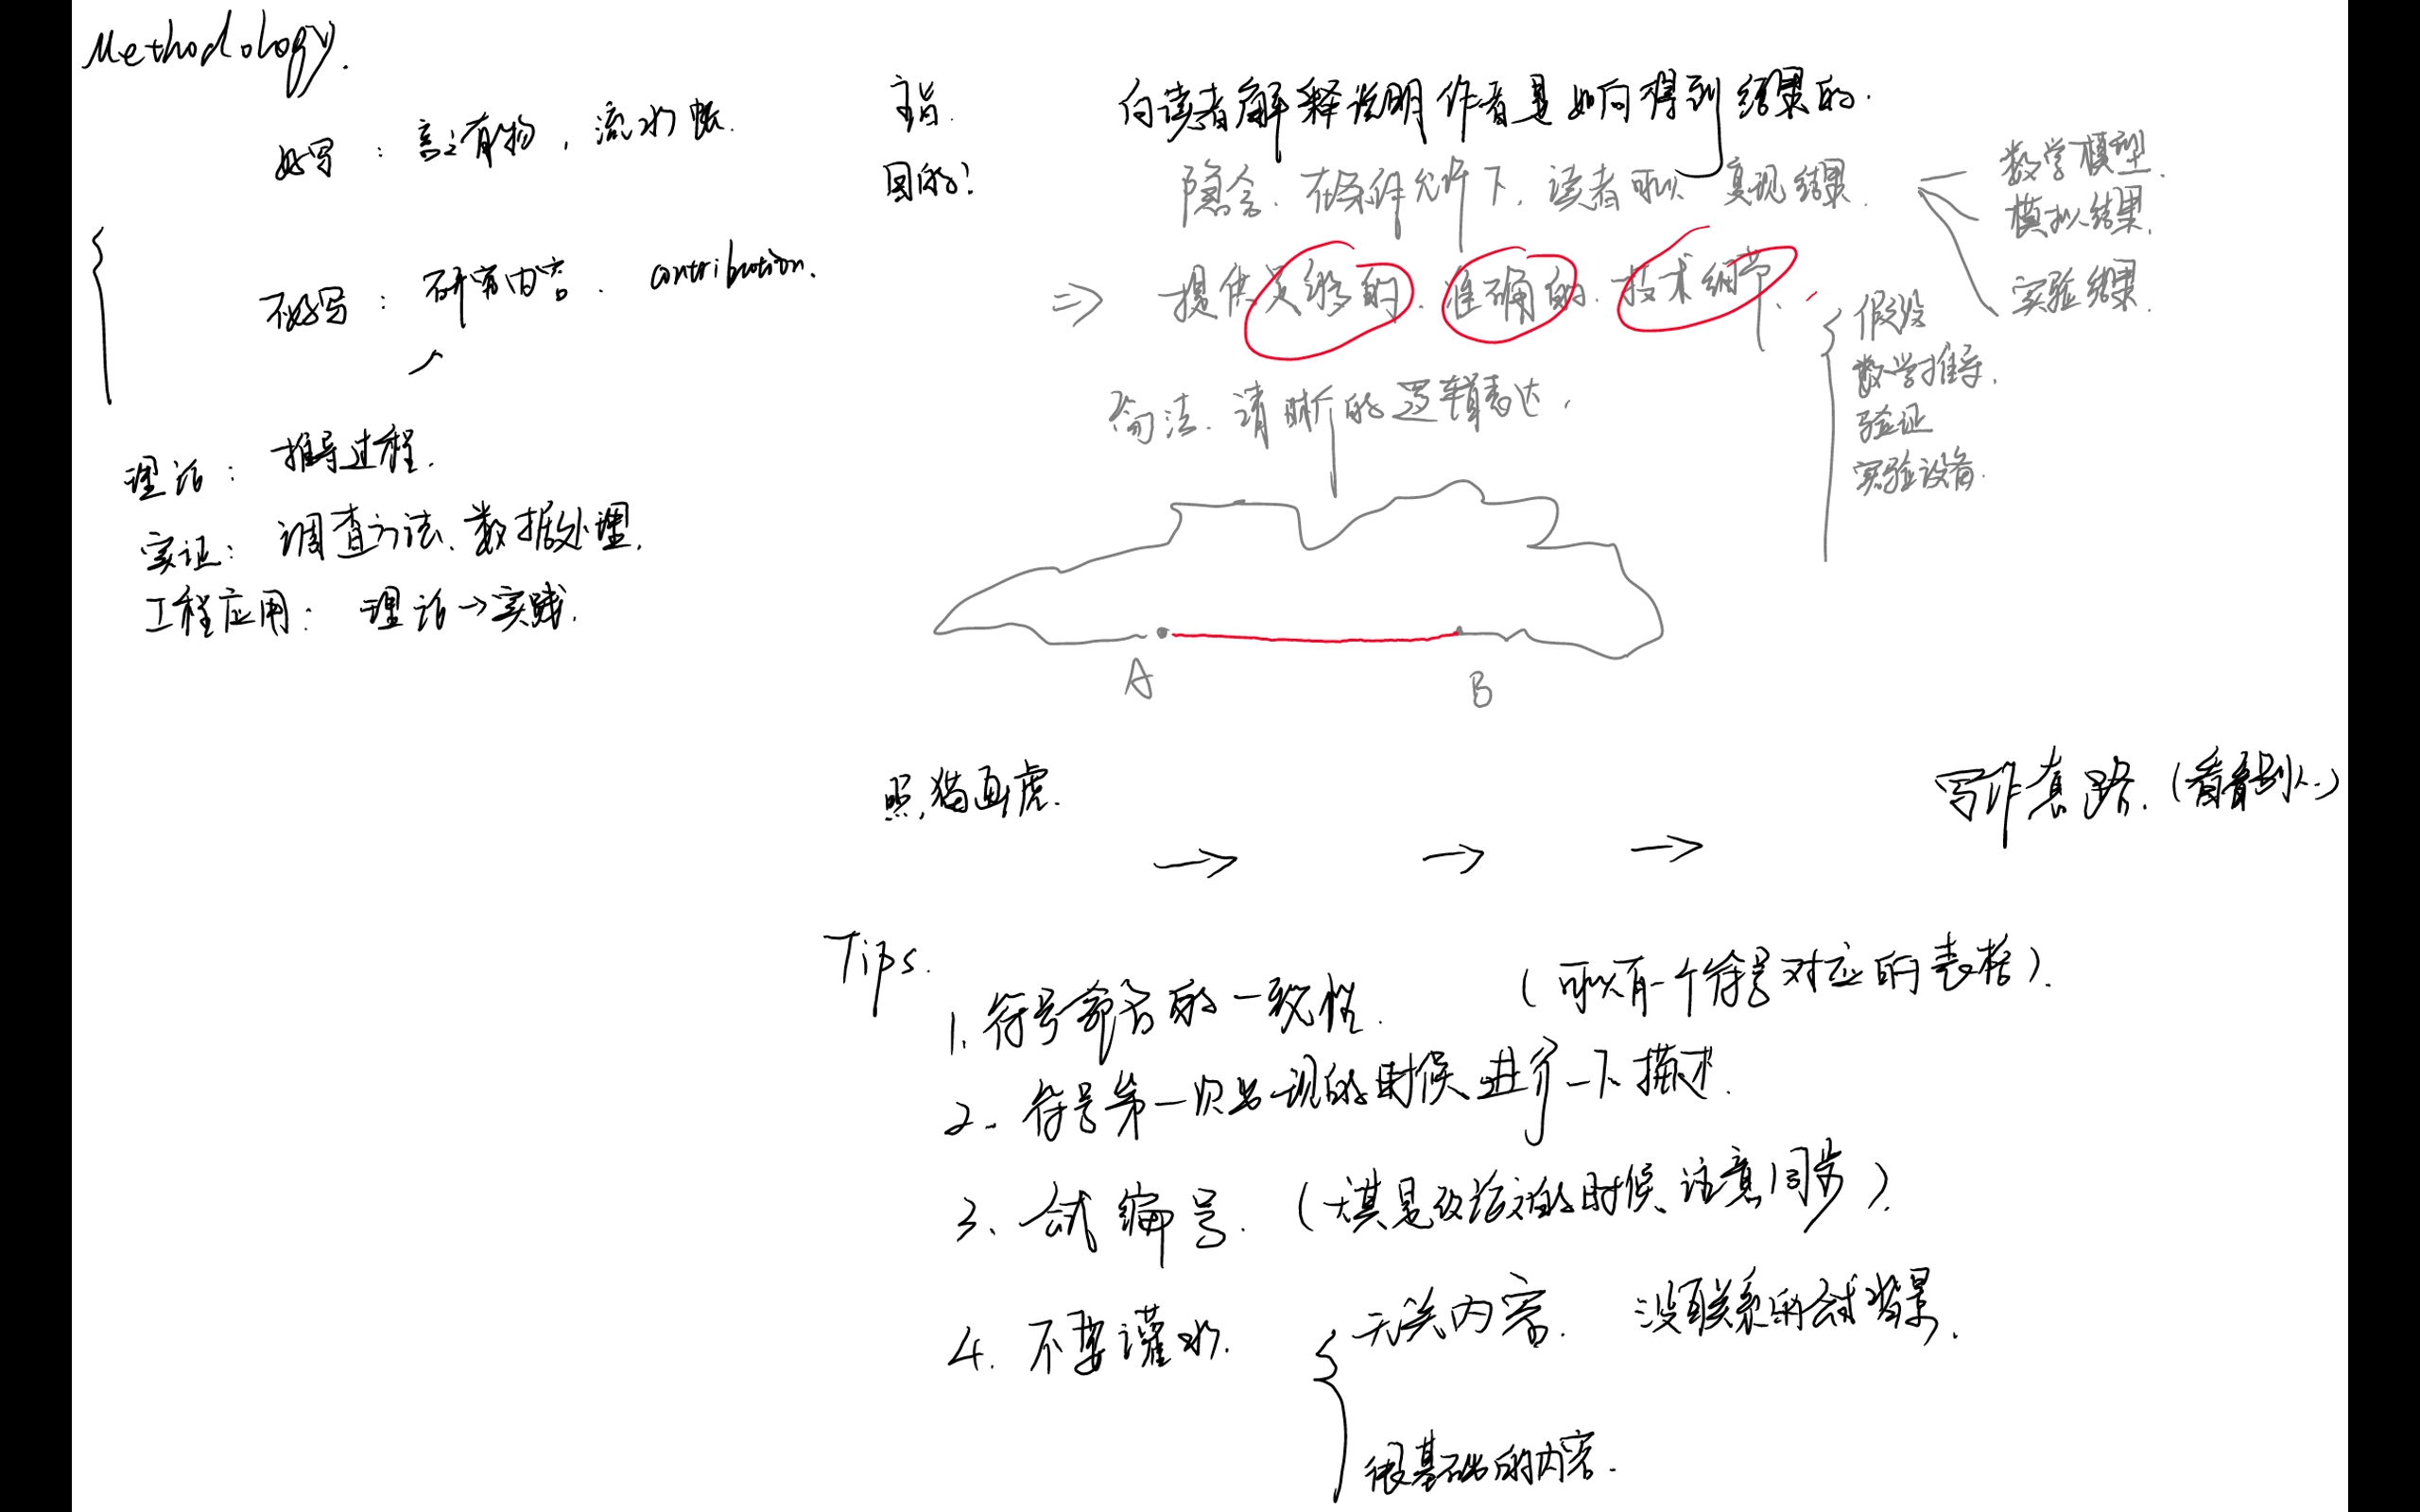 Methodology.
好写：言之有物，流水账.
不好写：研究内容. contribution.
理论：推导过程.
实证：调查方法、数据处理.
工程应用：理论→实践.
主旨.
目的？
向读者解释说明作者是如何得到结果的.
隐含. 在条件允许下，读者可以复现结果.
数学模型.
模拟结果.
实验结果.
⇒ 提供足够的. 准确的. 技术细节.
假设
数学推导.
验证
实验设备.
句法. 清晰的逻辑表达.
A
B
照猫画虎.
→ → →
写作套路.（看看别人.）
Tips.
1. 符号前后的一致性.（可以有一个符号对应的表格）.
2. 符号第一次出现的时候进行一下描述.
3、公式编号.（尤其是改论文的时候、注意同步）.
4. 不要灌水.
无关内容. 没联系的公式背景.
很基础的内容.